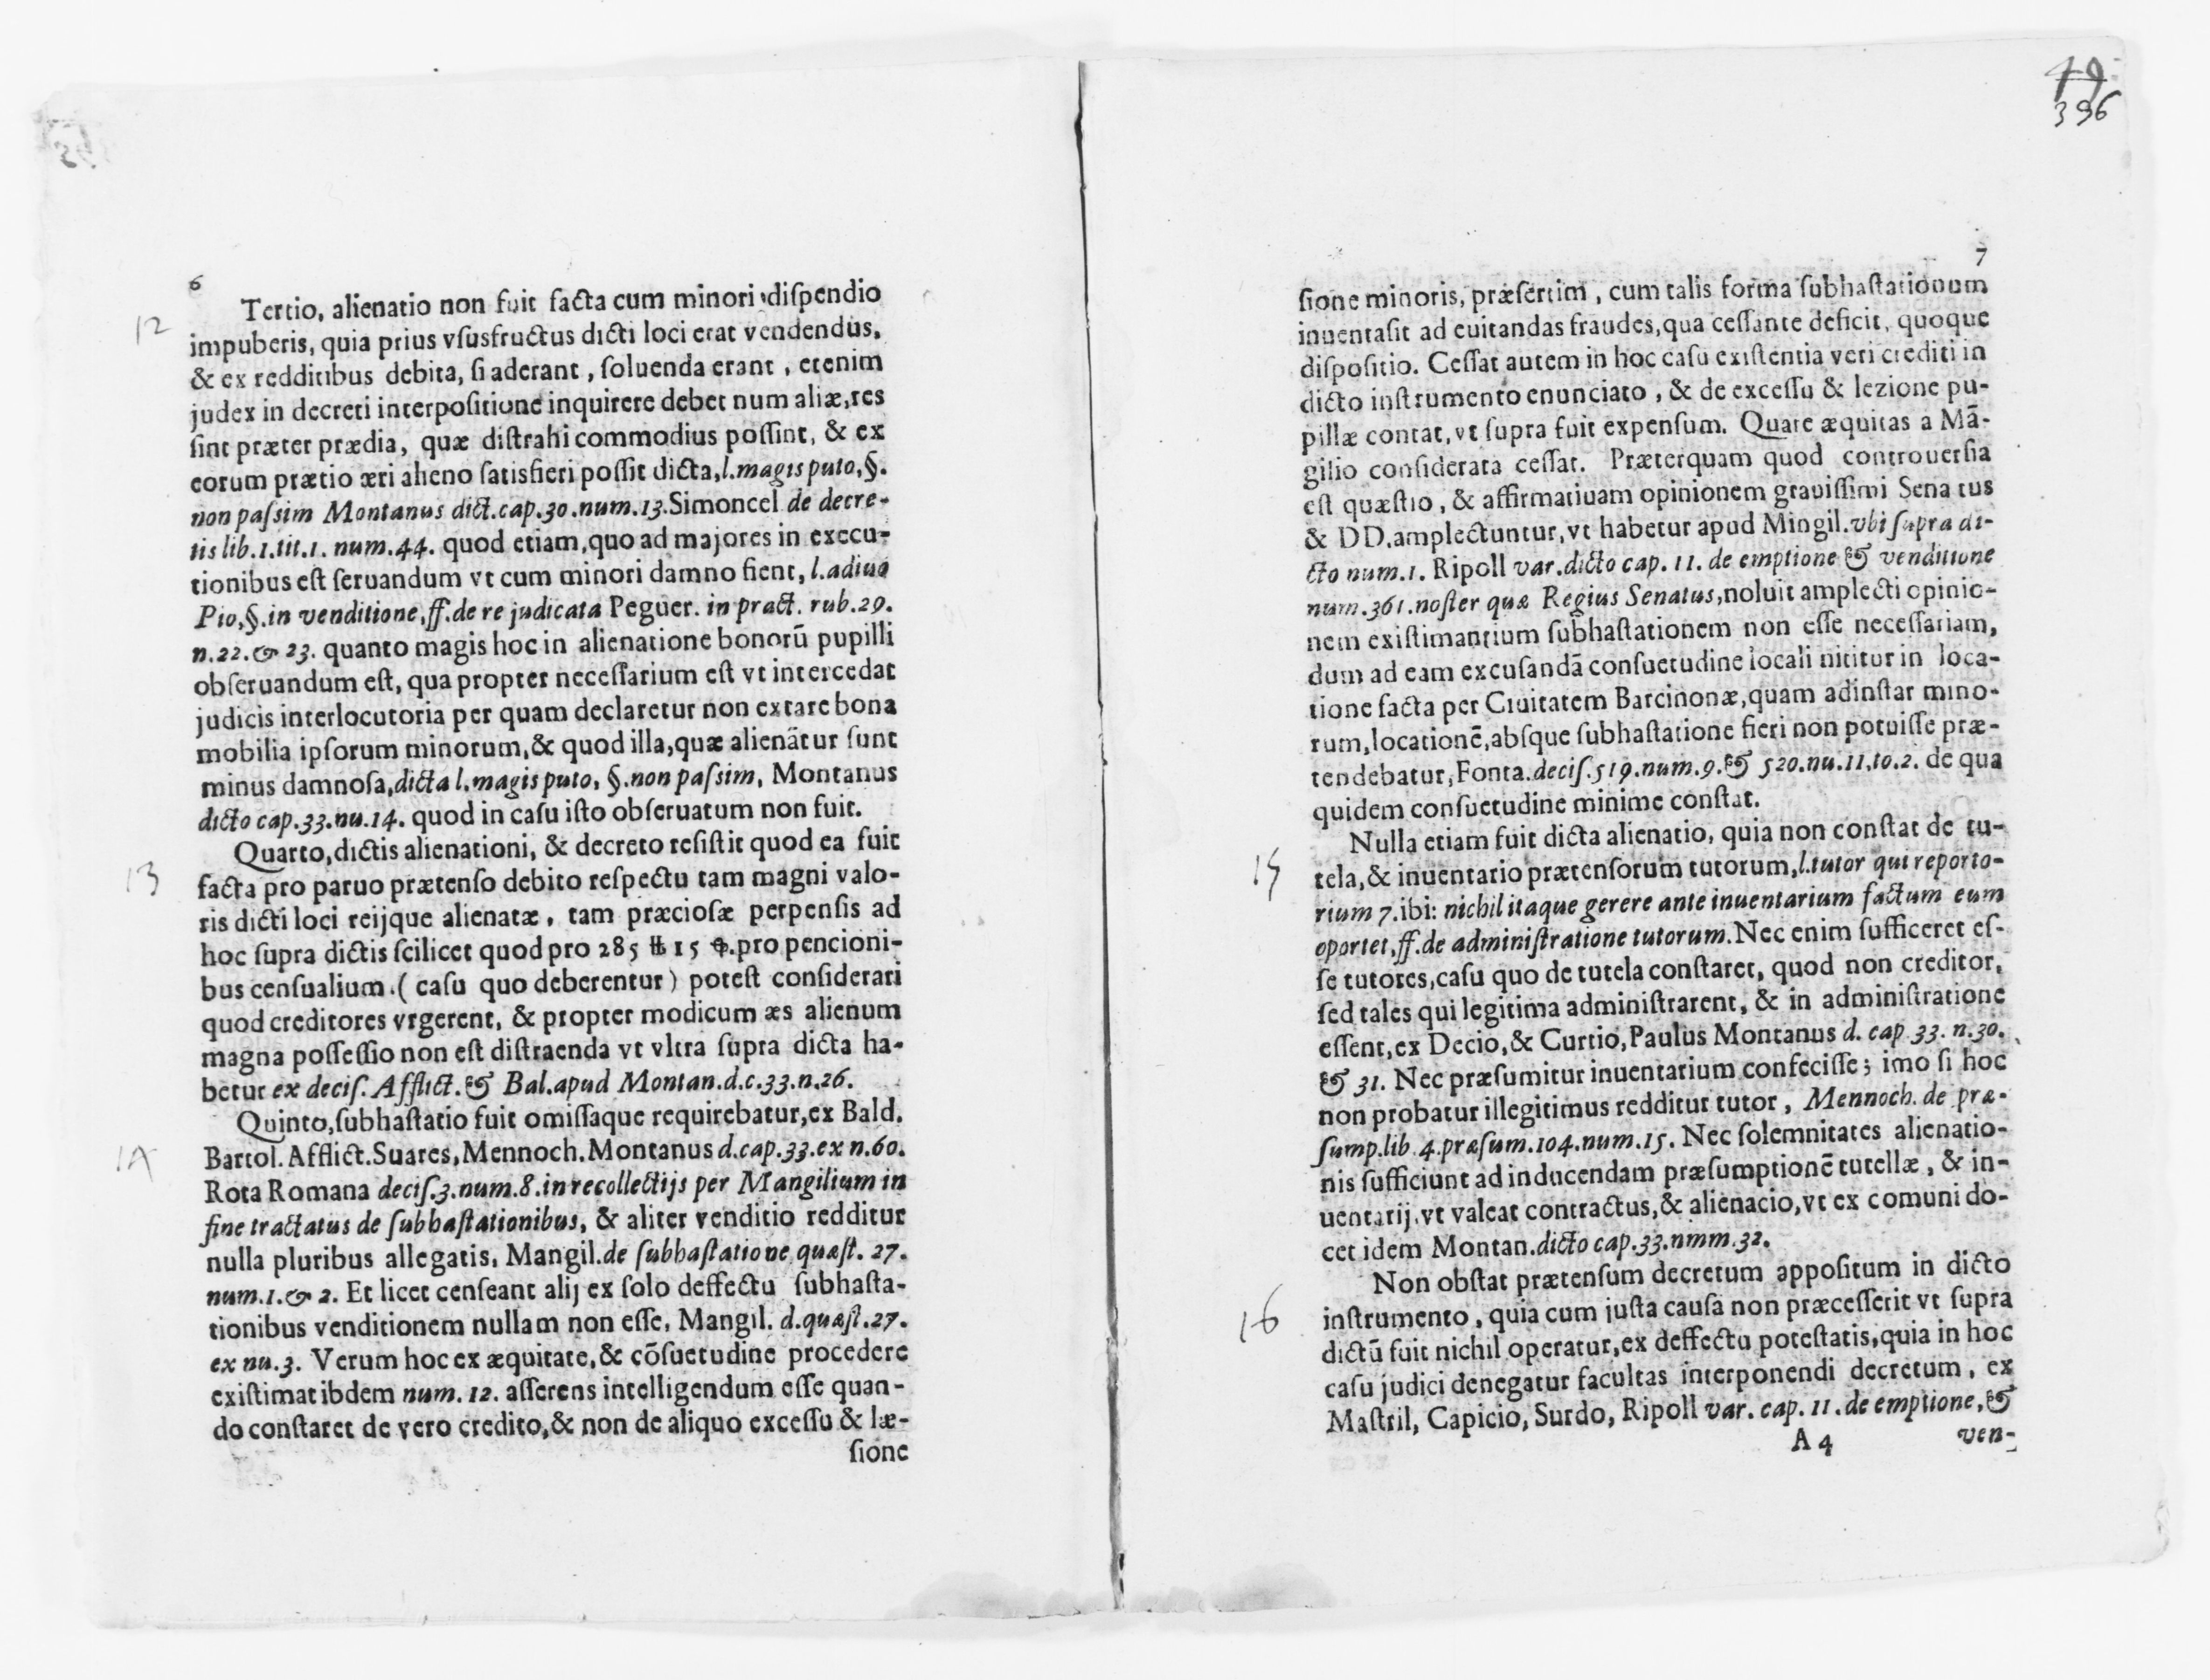 6
12
Tertio, alienatio non fuit facta cum minori dispendio
impuberis, quia prius vsusfructus dicti loci erat vendendus,
& ex redditibus debita, si aderant, soluenda erant, etenim
judex in decreti interpositione inquirere debet num aliæ, res
sint præter prædia, quæ distrahi commodius possint, & ex
eorum prætio æri alieno satisfieri possit dicta, l. magis puto, §.
non passim Montanus dict. cap. 30. num. 13. Simoncel de decre-
tis lib. 1. tit. 1. num. 44. quod etiam, quo ad majores in execu-
tionibus est seruandum vt cum minori damno fient, l. adiuo
Pio, §. in venditione, ff. de re judicata Peguer. in pract. rub. 29.
n. 22. & 23. quanto magis hoc in alienatione bonorū pupilli
obseruandum est, qua propter necessarium est vt intercedat
judicis interlocutoria per quam declaretur non extare bona
mobilia ipsorum minorum, & quod illa, quæ alienātur sunt
minus damnosa, dicta l. magis puto, §. non passim, Montanus
dicto cap. 33. nu. 14. quod in casu isto obseruatum non fuit.
13
Quarto, dictis alienationi, & decreto resistit quod ea fuit
facta pro paruo prætenso debito respectu tam magni valo-
ris dicti loci reijque alienatæ, tam præciosæ perpensis ad
hoc supra dictis scilicet quod pro 285 ℔ 15 ꝸ. pro pencioni-
bus censualium. ( casu quo deberentur ) potest considerari
quod creditores vrgerent, & propter modicum æs alienum
magna possessio non est distraenda vt vltra supra dicta ha-
betur ex decis. Afflict. & Bal. apud Montan. d. c. 33. n. 26.
14
Quinto, subhastatio fuit omissaque requirebatur, ex Bald.
Bartol. Afflict. Suares, Mennoch. Montanus d. cap. 33. ex n. 60.
Rota Romana decis. 3. num. 8. in recollectijs per Mangilium in
fine tractatus de subhastationibus, & aliter venditio redditur
nulla pluribus allegatis, Mangil. de subhastatione quæst. 27.
num. 1. & 2. Et licet censeant alij ex solo deffectu subhasta-
tionibus venditionem nullam non esse, Mangil. d. quæst. 27.
ex nu. 3. Verum hoc ex æquitate, & cōsuetudine procedere
existimat ibdem num. 12. asserens intelligendum esse quan-
do constaret de vero credito, & non de aliquo excessu & læ-
sione
49
396
7
sione minoris, præsertim, cum talis forma subhastationum
inuentasit ad euitandas fraudes, qua cessante deficit, quoque
dispositio. Cessat autem in hoc casu existentia veri crediti in
dicto instrumento enunciato, & de excessu & lezione pu-
pillæ contat, vt supra fuit expensum. Quare æquitas a Mā-
gilio considerata cessat. Præterquam quod controuersia
est quæstio, & affirmatiuam opinionem grauissimi Sena tus
& DD. amplectuntur, vt habetur apud Mingil. vbi supra di-
cto num. 1. Ripoll var. dicto cap. 11. de emptione & venditione
num. 361. noster quæ Regius Senatus, noluit amplecti opinio-
nem existimantium subhastationem non esse necessariam,
dum ad eam excusandā consuetudine locali nititur in loca-
tione facta per Ciuitatem Barcinonæ, quam adinstar mino-
rum, locationē, absque subhastatione fieri non potuisse præ-
tendebatur, Fonta. decis. 519. num. 9. & 520. nu. 11. to. 2. de qua
quidem consuetudine minime constat.
15
Nulla etiam fuit dicta alienatio, quia non constat de tu-
tela, & inuentario prætensorum tutorum, l. tutor qui reporto-
rium 7. ibi: nichil itaque gerere ante inuentarium factum eum
oportet, ff. de administratione tutorum. Nec enim sufficeret es-
se tutores, casu quo de tutela constaret, quod non creditor,
sed tales qui legitima administrarent, & in administratione
essent, ex Decio, & Curtio, Paulus Montanus d. cap 33. n. 30.
& 31. Nec præsumitur inuentarium confecisse; imo si hoc
non probatur illegitimus redditur tutor, Mennoch. de præ-
sump. lib 4. præsum. 104. num. 15. Nec solemnitates alienatio-
nis sufficiunt ad inducendam præsumptionē tutellæ, & in-
uentarij, vt valeat contractus, & alienacio, vt ex comuni do-
cet idem Montan. dicto cap. 33. nmm. 32.
16
Non obstat prætensum decretum appositum in dicto
instrumento, quia cum justa causa non præcesserit vt supra
dictū fuit nichil operatur, ex deffectu potestatis, quia in hoc
casu judici denegatur facultas interponendi decretum, ex
Mastril, Capicio, Surdo, Ripoll var. cap. 11. de emptione, &
A 4 ven-